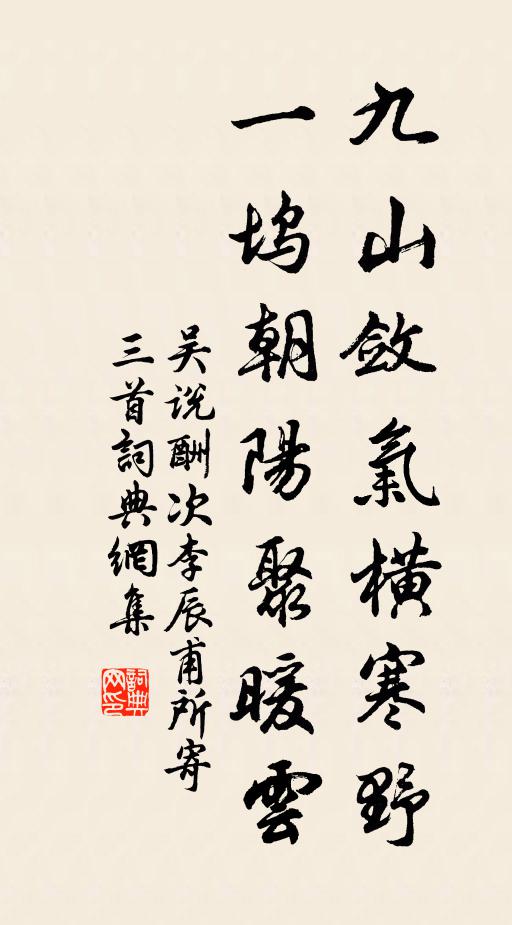 九山斂氣橫寒野
一塢朝陽聚暖雲
吴说酬次李辰甫所寄
三首詞典網集
詞典
网印